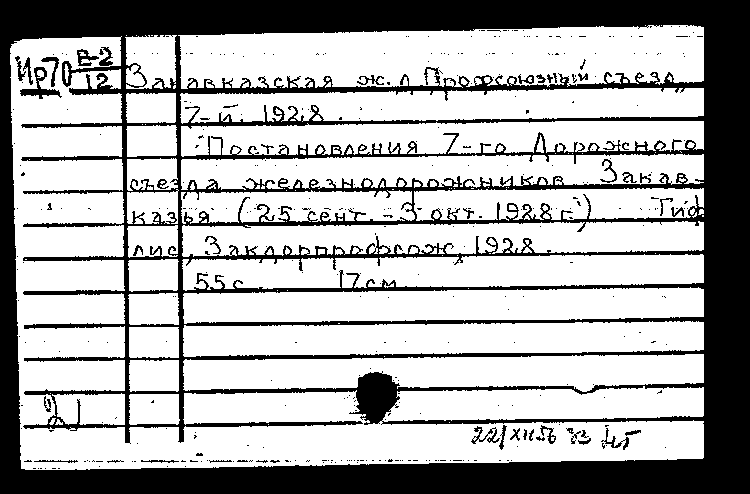 Ир70 В-2
12
Закавказская ж. д Профсоюзный съезд,
7-й. 1928.
Постановления 7-го Дорожного
съезда железнодорожников Закав-
казья (25 сент. - 3 окт. 1928 г.) Тиф
лис, Закдорпрофсож, 1928.
55 с. 17 см
22/XII 56